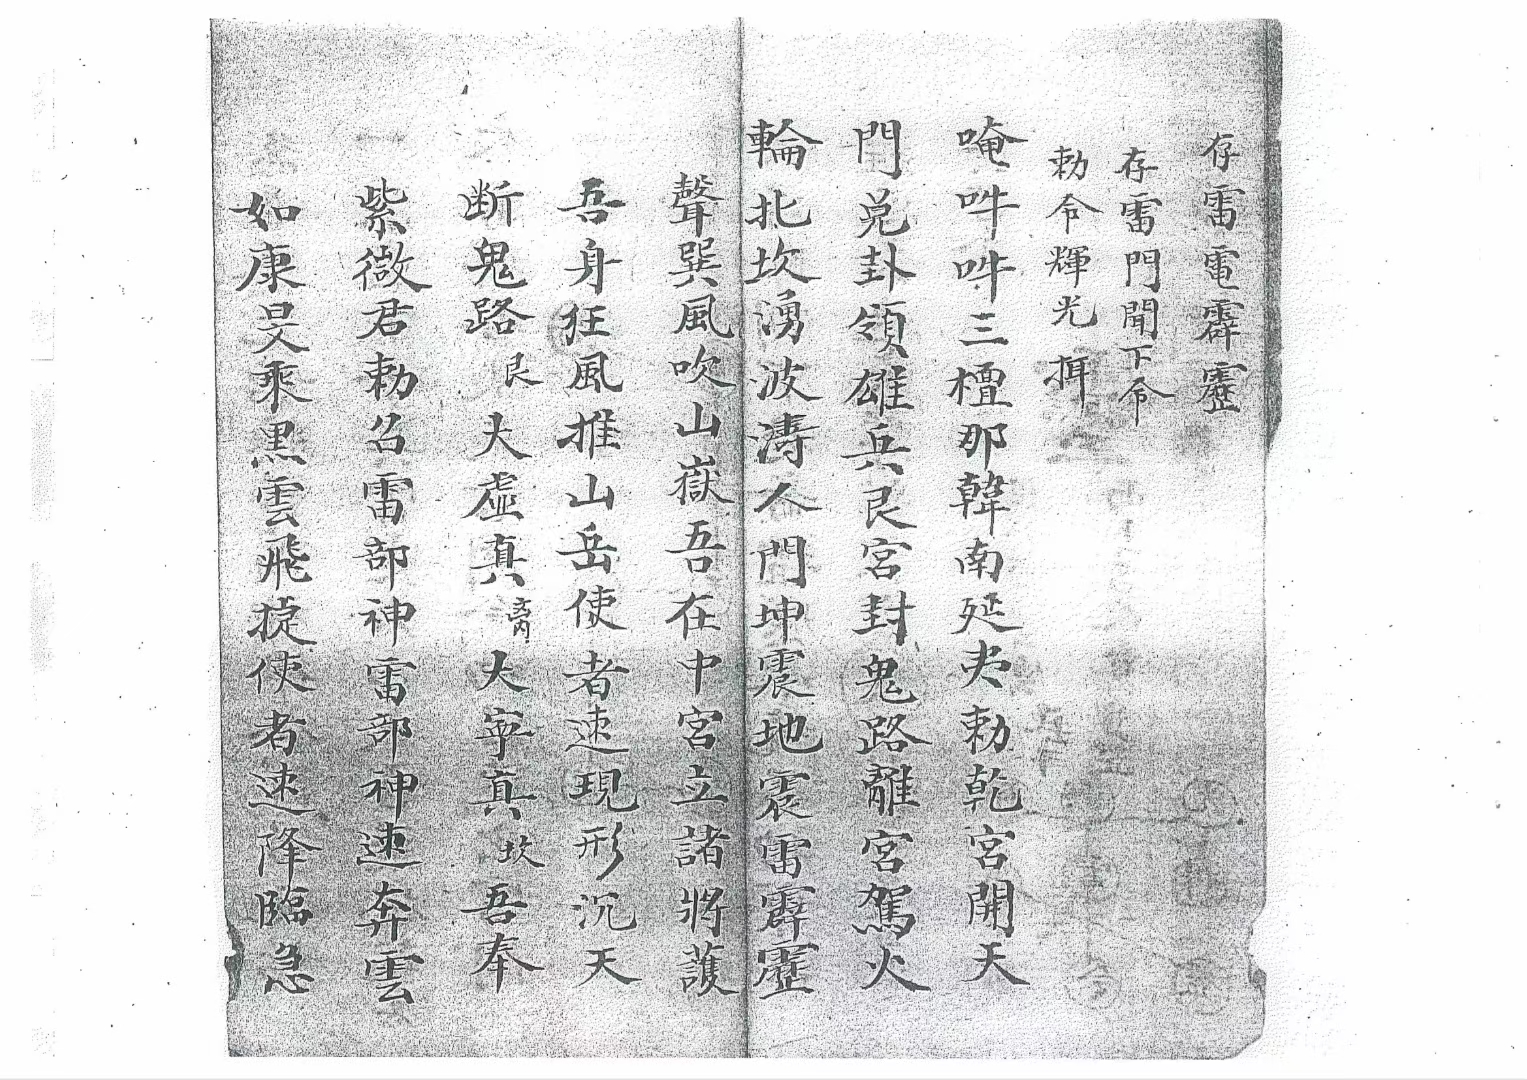 存雷電霹靂
存雷門聞下令
勅令輝光 揖
唵吽吽三檀那韓南延夬勅乾宮開天
門兑卦領雄兵艮宮封鬼路離宮駕火
輪北坎湧波濤人門坤震地震雷霹靂
聲巽風吹山嶽吾在中宮立諸將護
吾身狂風推山岳使者速現形沉天
断鬼路 艮 大虛真 离 大寧真 坎 吾奉
紫微君勅召雷部神雷部神速奔雲
如康旲乘黑雲飛捷使者速降臨急